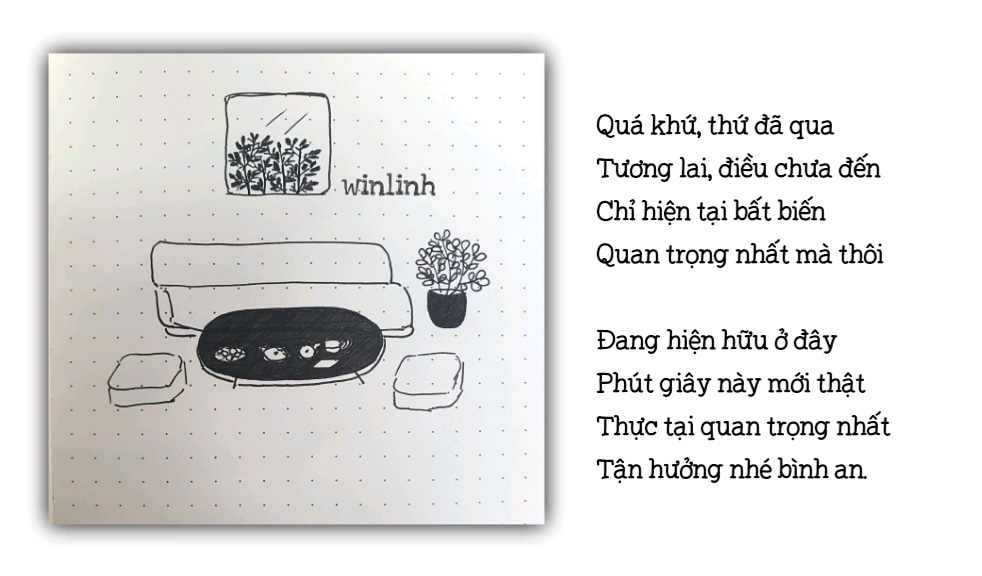 winlinh
Quá khứ, thứ đã qua
Tương lai, điều chưa đến
Chỉ hiện tại bất biến
Quan trọng nhất mà thôi
Đang hiện hữu ở đây
Phút giây này mới thật
Thực tại quan trọng nhất
Tận hưởng nhé bình an.